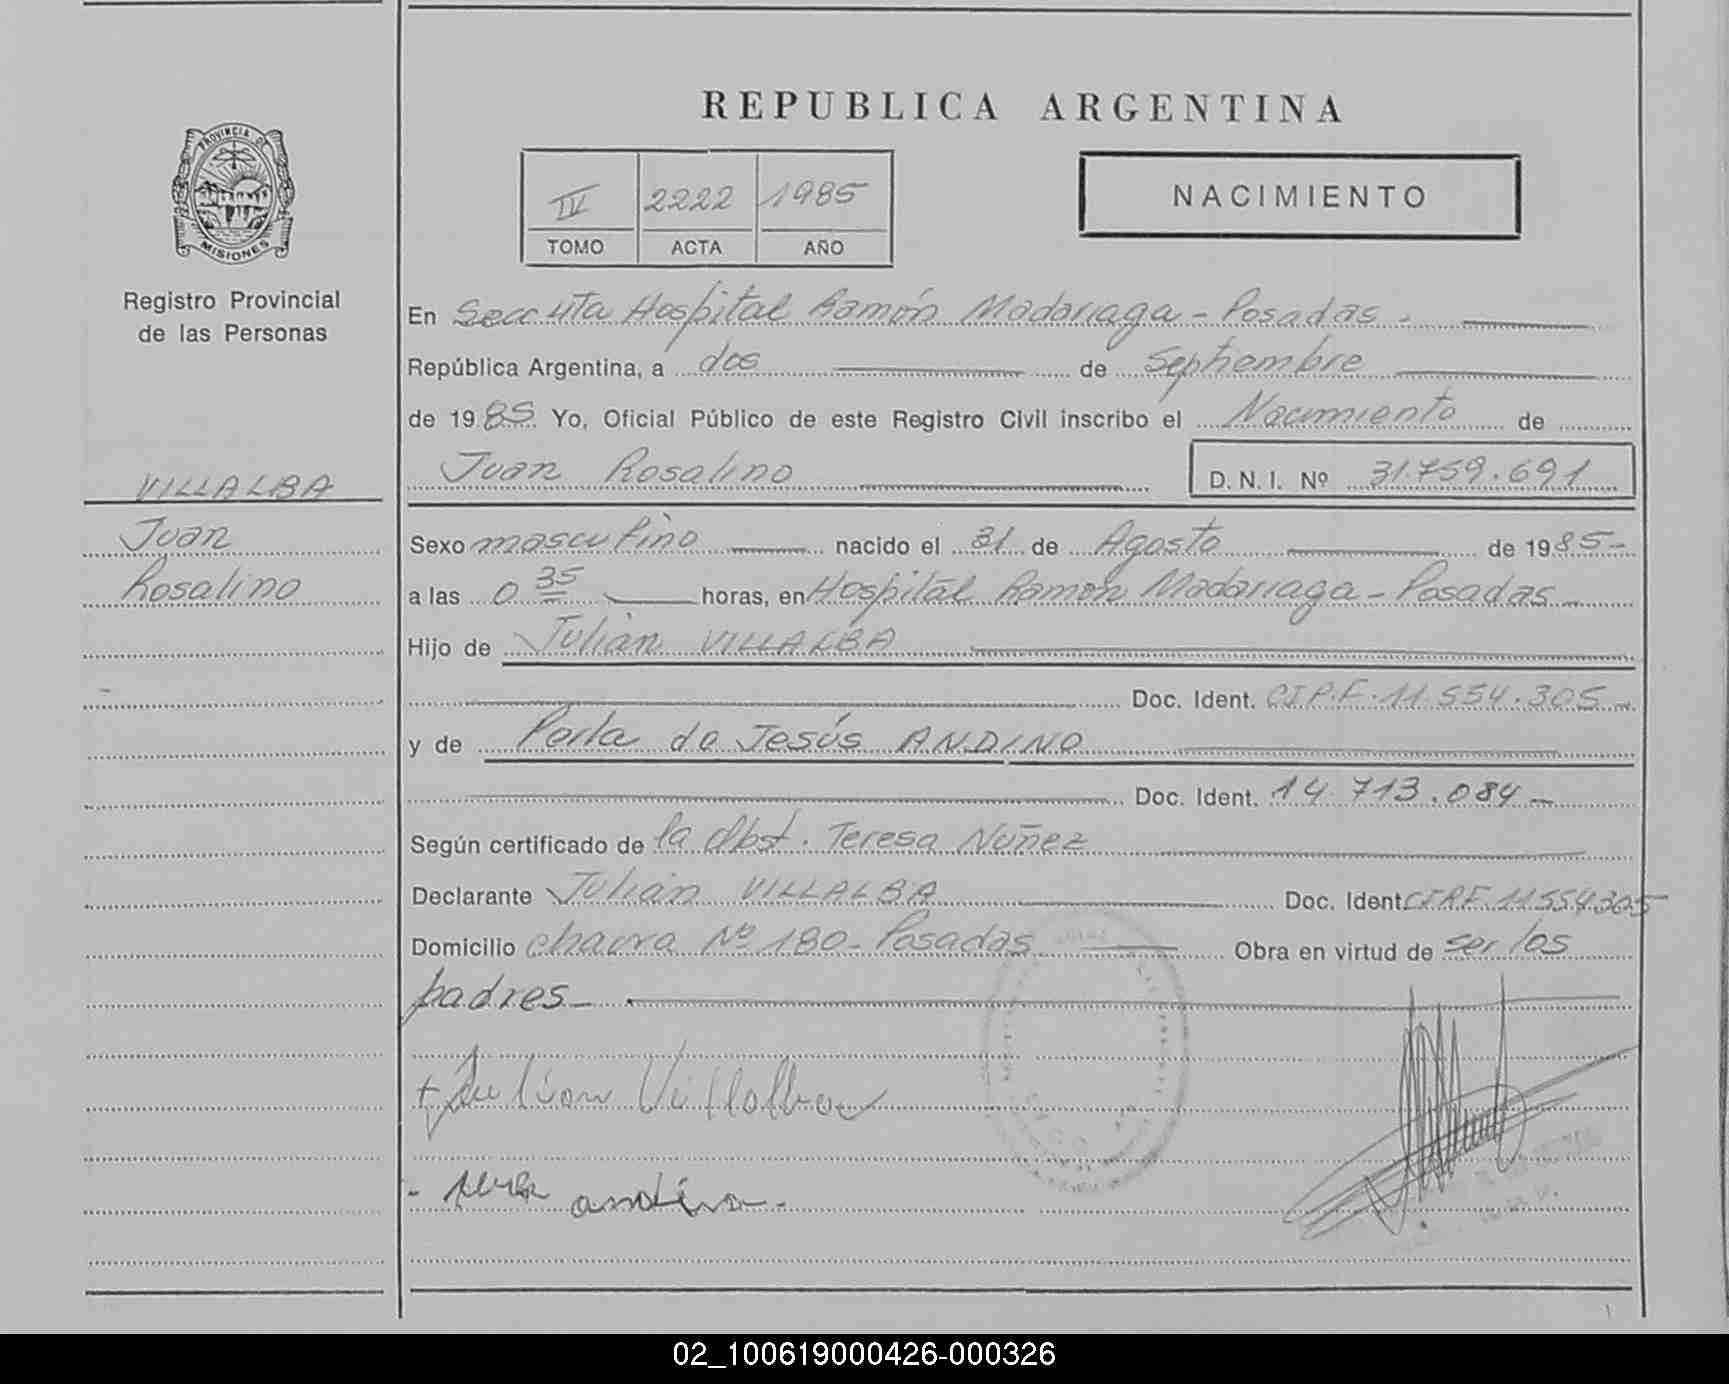 REPUBLICA ARGENTINA
PROVINCIA DE
MISIONES
Registro Provincial
de las Personas
IV 2222 1985
TOMO ACTA AÑO
NACIMIENTO
En Secc 4ta Hospital Ramón Madariaga - Posadas -
República Argentina, a dos de Septiembre
de 1985 Yo, Oficial Público de este Registro Civil inscribo el Nacimiento de
Juan Rosalino D.N.I. Nº 31.759.691
VILLALBA
Juan
Rosalino
Sexo masculino nacido el 31 de Agosto de 1985-
a las 0 35 horas, en Hospital Ramón Madariaga - Posadas -
Hijo de Julián VILLALBA
Doc. Ident. CIP.F. 11.554.305 -
y de Perla de Jesús ANDINO
Doc. Ident. 14.713.084 -
Según certificado de la Obst. Teresa Nuñez
Declarante Julián VILLALBA Doc. Ident. 11554305
Domicilio chacra Nº 180 - Posadas Obra en virtud de ser los
padres -
Julian Villalba
andino
02_100619000426-000326